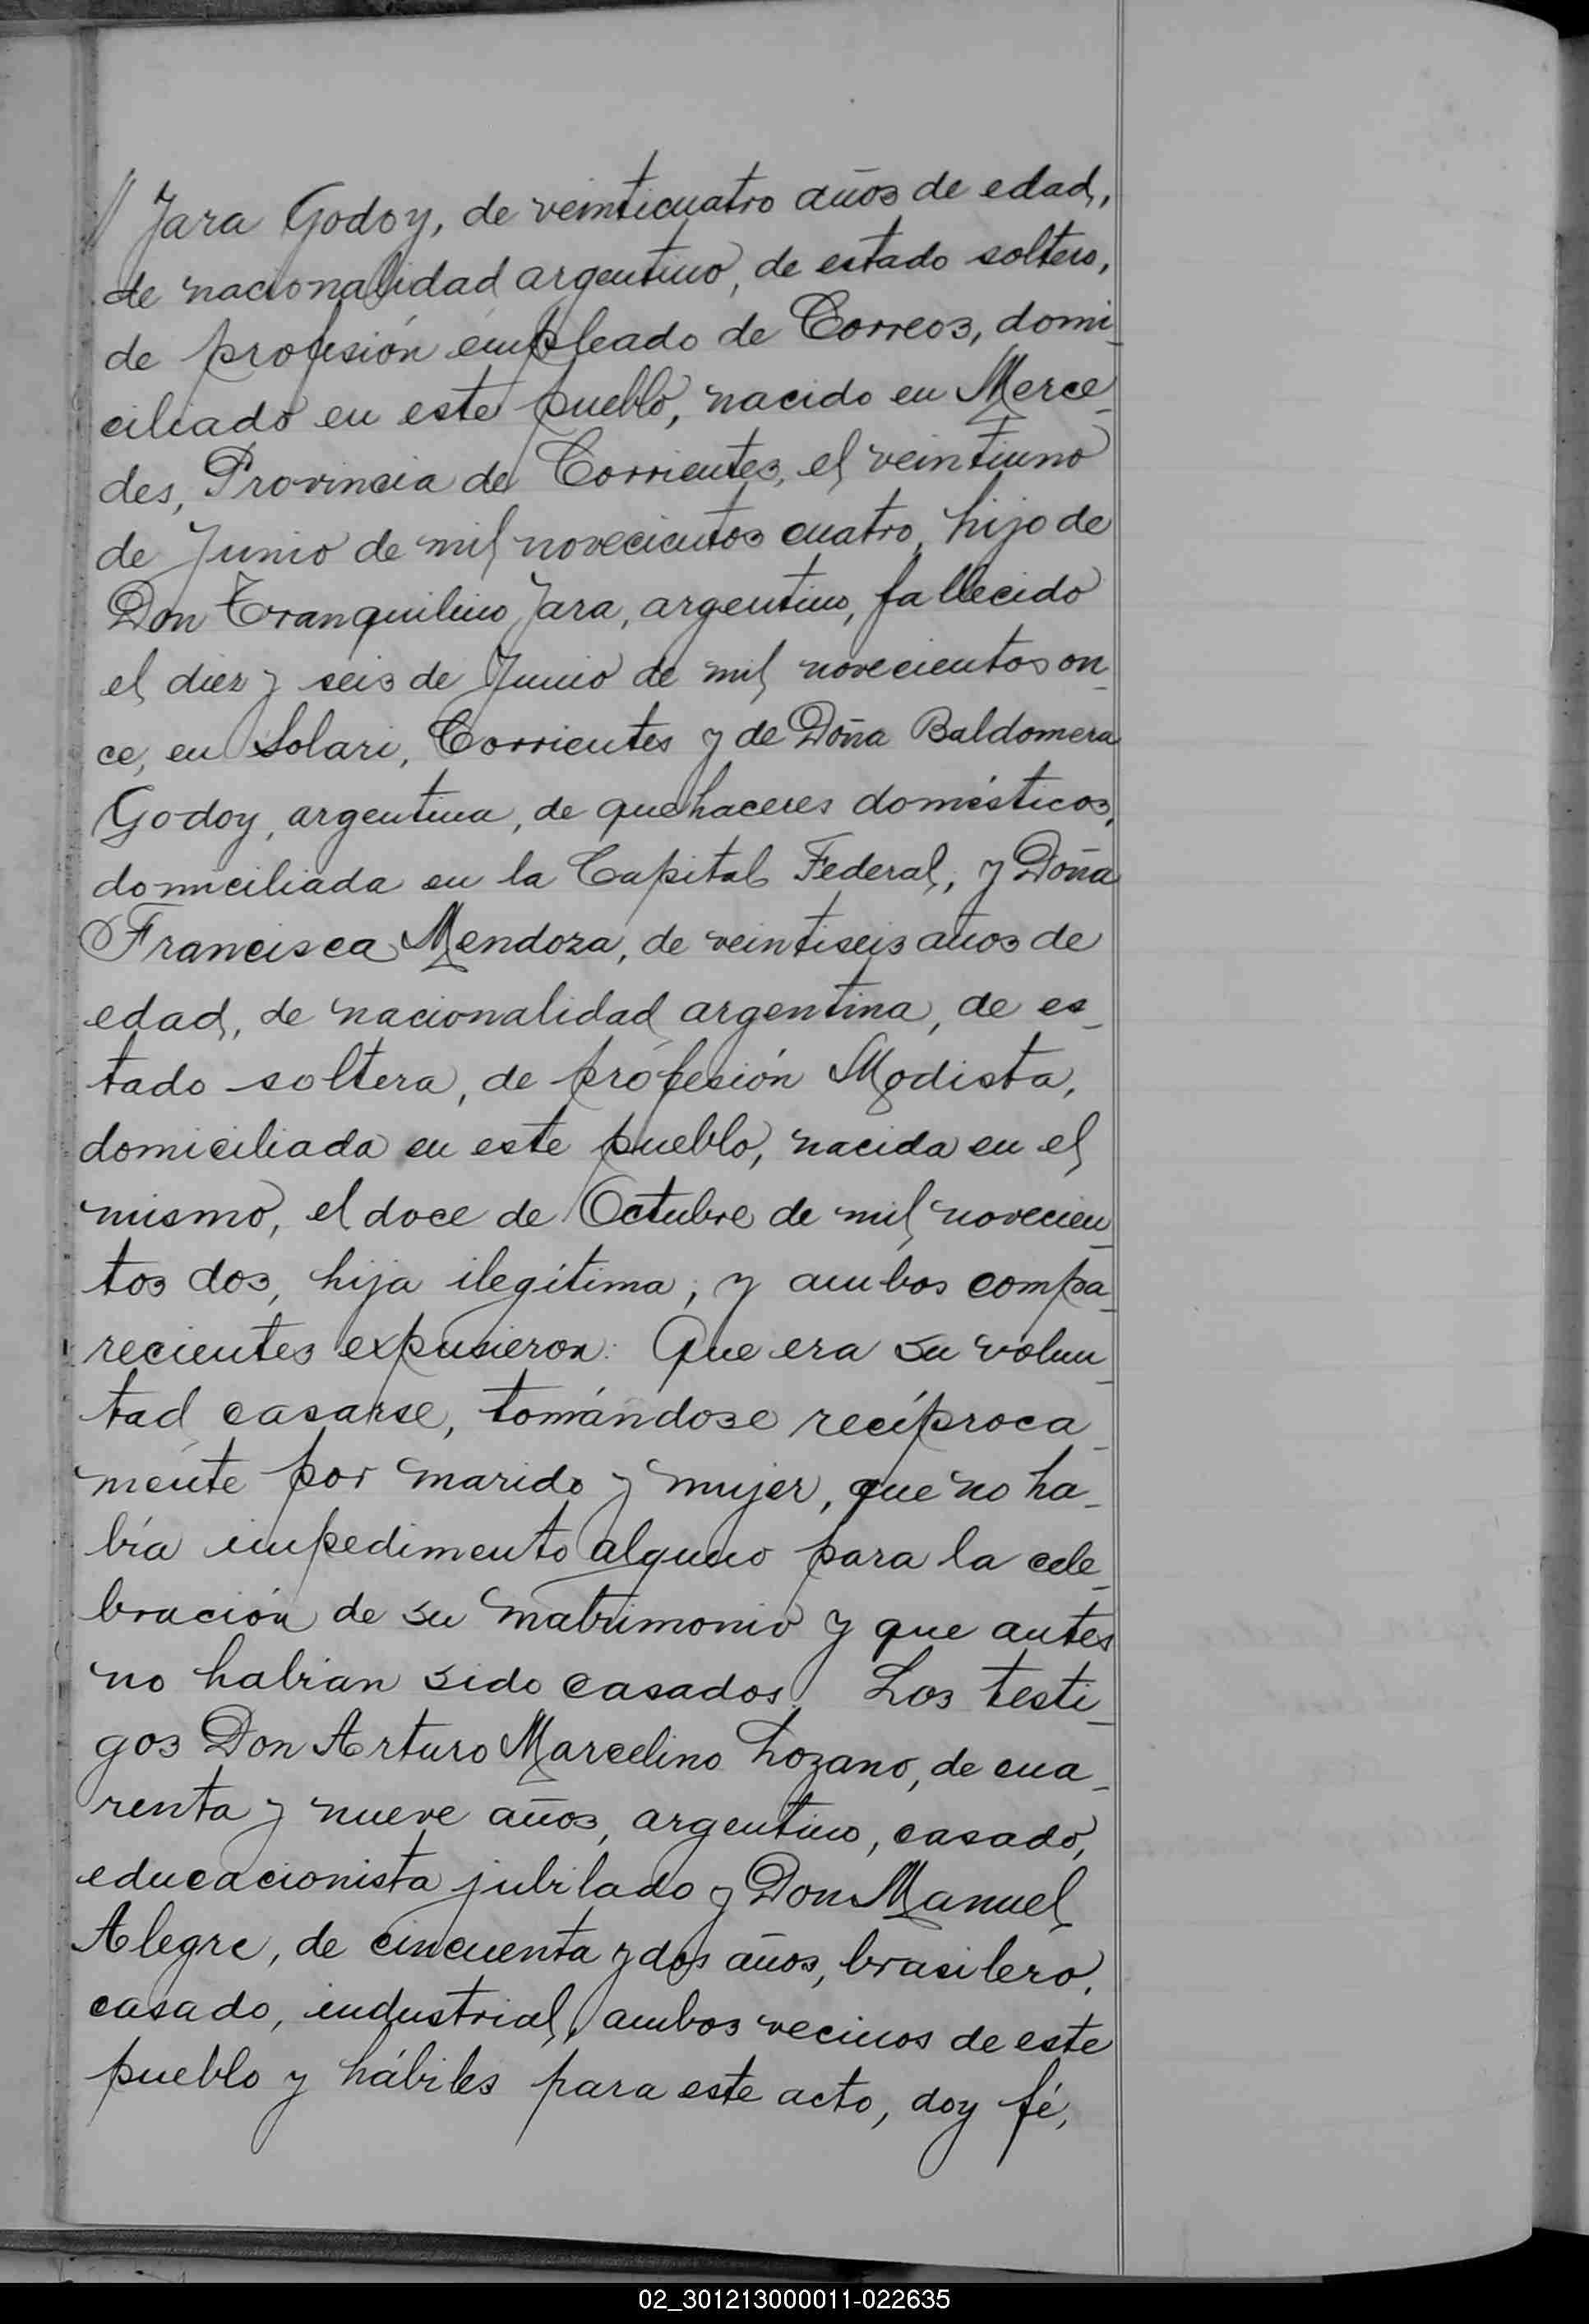 // Jara Godoy, de veinticuatro años de edad,
de nacionalidad argentino, de estado soltero,
de profesión empleado de Correos, domi_
ciliado en este pueblo, nacido en Merce_
des, Provincia de Corrientes, el veintiuno
de Junio de mil novecientos cuatro, hijo de
Don Tranquilino Jara, argentino, fallecido
el diez y seis de Junio de mil novecientos on_
ce, en Solari, Corrientes y de Doña Baldomera
Godoy, argentina, de quehaceres domésticos,
domiciliada en la Capital Federal; y Doña
Francisca Mendoza, de veintiseis años de
edad, de nacionalidad argentina, de es_
tado soltera, de profesión Modista,
domiciliada en este pueblo, nacida en el
mismo, el doce de Octubre de mil novecien_
tos dos, hija ilegítima; y ambos compa_
recientes expusieron: Que era su volun_
tad casarse, tomándose recíproca_
mente por marido y mujer, que no ha_
bía impedimento alguno para la cele_
bración de su matrimonio y que antes
no habían sido casados. Los testi_
gos Don Arturo Marcelino Lozano, de cua_
renta y nueve años, argentino, casado,
educacionista jubilado y Don Manuel
Alegre, de cincuenta y dos años, brasilero,
casado, industrial, ambos vecinos de este
pueblo y hábiles para este acto, doy fé,
02_301213000011-022635